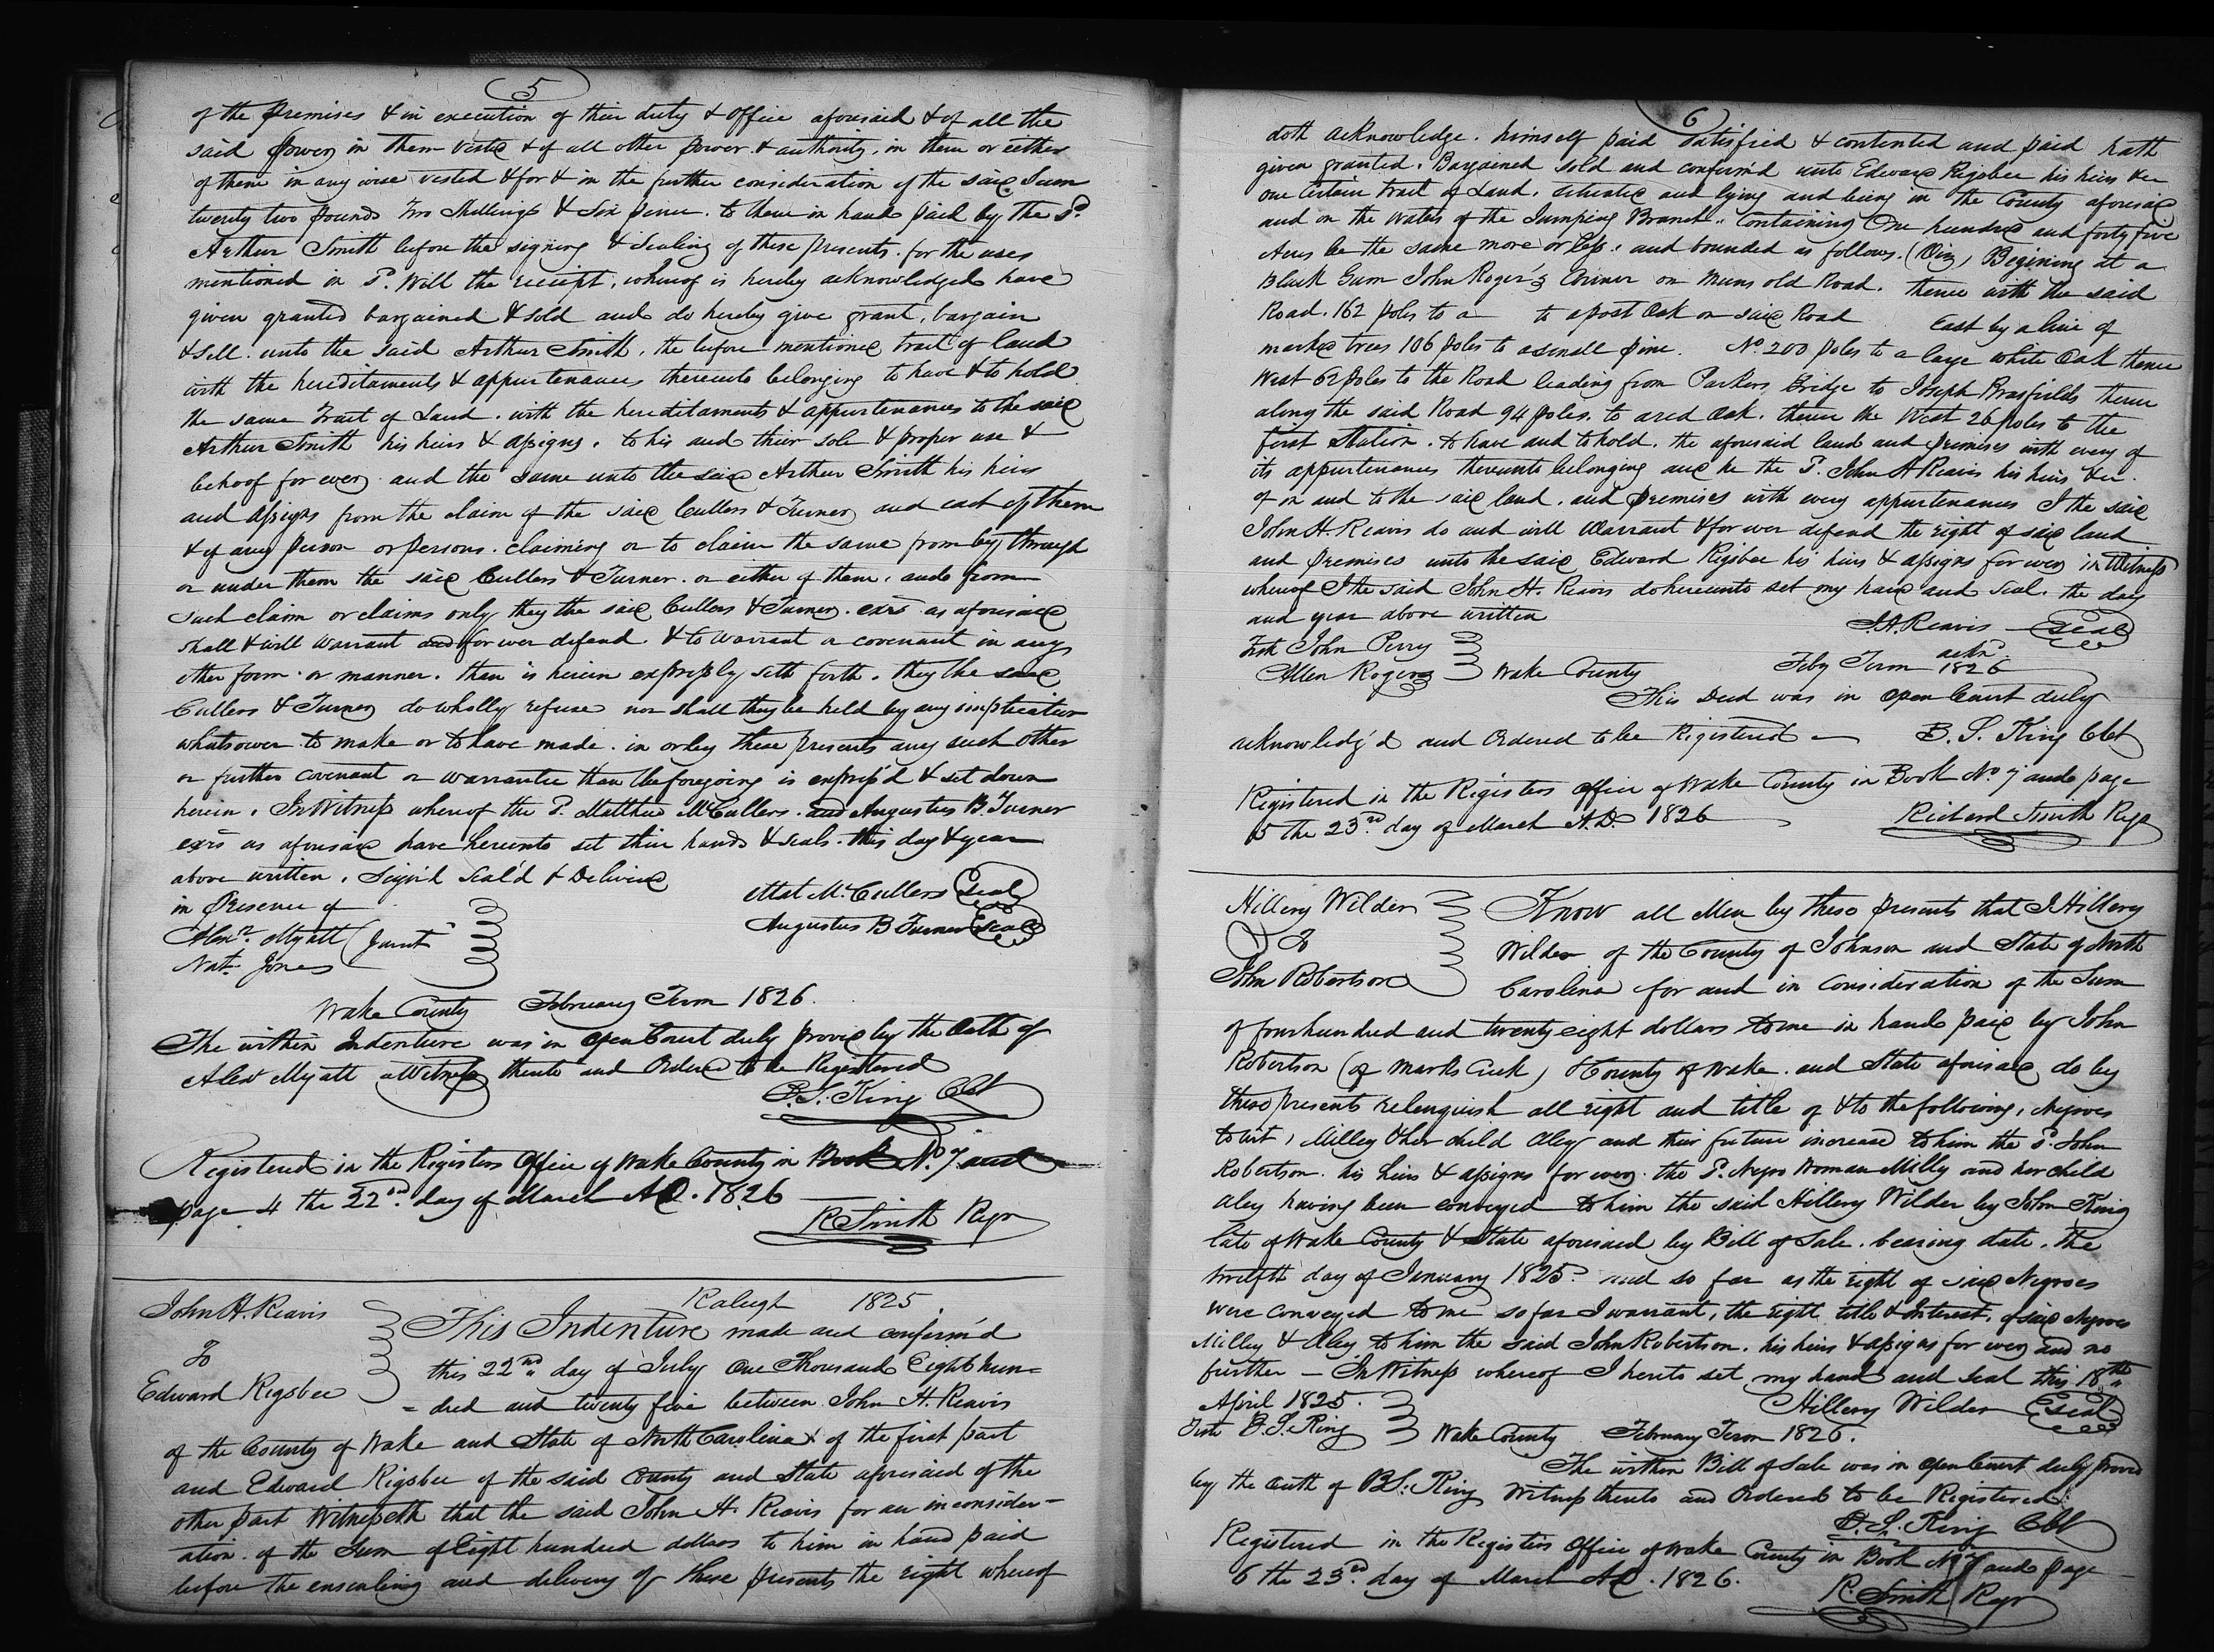 5
of the premises & in execution of their duty & office aforesaid & of all the
said power in them vested & of all other power & authority, in them or either
of them in any wise vested & for & in the further consideration of the said Sum
twenty two pounds Two Shillings & Six pence. to them in hand paid by the Sd.
Arthur Smith before the signing & Sealing of these presents. for the uses
mentioned in S. Will the receipt, whereof is hereby acknowledged have
given granted bargained & sold and do hereby give grant, bargain
& sell. unto the said Arthur Smith, the before mentioned tract of land
with the hereditaments & appurtenances thereunto belonging to have & to hold
the same Tract of Land. with the hereditaments & appurtenances to the said
Arthur Smith his heirs & assigns. to his and their sole & proper use &
behoof for ever and the same unto the said Arthur Smith his heirs
and assigns from the claim of the said Cullers & Turner and each of them
& of any person or persons. claiming or to claim the same from by through
or under them the said Cullers & Turner. or either of them. and from
such claim or claims only they the said Cullers & Turner. exrs as aforesaid
shall & will warrant and for ever defend. & to warrant or covenant in any
other form or manner. than is herein expressly seth forth. they the said
Cullers & Turner do wholly refuse nor shall they be held by any implication
whatsoever to make or to have made. in or by these presents any such other
or further covenant or warrantee than the foregoing is express'd & set down
herein. In Witness whereof the S. Matthew McCullers. and Augustus B. Turner
exrs as aforesaid have hereunto set their hands & seals. this day & year
above written. Sign'd Seal'd & Delivered
in presence of
Mat McCullers Seal
Alexr. Myatt Jurat
Augustus B Turner Seal
Nat. Jones
Wake County February Term 1826.
The within Indenture was in open Court duly proved by the Oath of
Alexr Myatt a Witness thereto and Ordered to be Registered
B. S. King Clk
Registered in the Registers Office of Wake County in Book No. 7 and
page 4 the 22nd. day of March AD. 1826
R Smith Regr
Raleigh 1825
John H. Reavis
To
Edward Rigsbee
This Indenture made and confirm'd
this 22nd day of July One Thousand Eight hun=
=dred and twenty five between John H. Reavis
of the County of Wake and State of North Carolina of the first part
and Edward Rigsbee of the said County and State aforesaid of the
other part Witnesseth that the said John H. Reavis for an in consider-
ation. of the Sum of Eight hundred dollars to him in hand paid
before the ensealing and delivery of these presents the right whereof
6
doth acknowledge. himself paid Satisfied & contented and paid hath
given granted. Bargained sold and confirm'd unto Edward Rigsbee his heirs &c
one Certain Tract of Land. situated and lying and being in the County aforesaid
and on the waters of the Jumping Branch. Containing One hundred and forty five
Acres be the same more or less. and bounded as follows. (Viz) Begining at a
Black Gum John Roger's Corner on Mims old Road. thence with the said
Road. 162 poles to a to a post Oak on said Road East by a line of
marked trees 106 poles to a small pine. No. 200 poles to a large white Oak thence
West 62 poles to the Road leading from Parkers Bridge to Joseph Brasfields thence
along the said Road 94 poles. to a red Oak. thence the West 26 poles to the
first Station. to have and to hold. the aforesaid land and premises with every of
its appurtenances thereunto belonging and he the S. John H Reavis his heirs &c.
of in and to the said land. and premises with every appurtenances I the said
John H. Reavis do and will Warrant & for ever defend the right of said land
and premises unto the said Edward Rigsbee his heirs & assigns for ever in Witness
whereof I the said John H. Reavis do hereunto set my hand and Seal. the day
and year above written
J. H. Reavis Seal
Test John Perry
Allen Rogers
Wake County Feby Term 1826
ackn
This Deed was in open Court duly
acknowledg'd and Ordered to be Registered B. S. King Clk
Registered in the Registers Office of Wake County in Book No 7 and page
5 the 23rd. day of March A.D. 1826
Richard Smith Regr
Hillery Wilder
To
John Robertson
Know all Men by these presents that I Hillery
Wilder of the County of Johnson and State of North
Carolina for and in Consideration of the Sum
of four hundred and twenty eight dollars to me in hand paid by John
Robertson (of Marks Creek) & County of Wake. and State aforesaid, do by
these presents relenquish all right and title of & to the following, Negroes
to wit, Milley & her child Aley and their future increase to him the S. John
Robertson his heirs & assigns for ever. the S. Negro Woman Milly and her child
Aley having been conveyed to him the said Hillery Wilder by John King
late of Wake County & State aforesaid by Bill of Sale. bearing date. the
twelfth day of January 1825. and so far as the right of said Negroes
were conveyed to me so far I warrant, the right title & Interest, of said Negroes
Milley & Aley to him the said John Robertson. his heirs & assigns for ever and no
further — In Witness whereof I hereto set my hand and seal this 18th
April 1825.
Hillery Wilder Seal
Test B. S. King
Wake County February Term 1826.
The within Bill of Sale was in open Court duly proved
by the oath of B S. King Witness thereto and Ordered to be Registered.
B. S. King Clk
Registered in the Registers Office of Wake County in Book No 7 and page
6 the 23rd. day of March AD. 1826.
R. Smith Regr